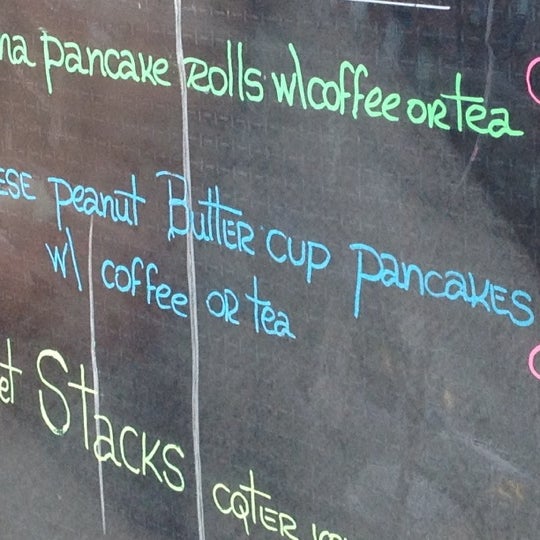 na pancake Rolls w\coffee or tea
ESE peanut Butter CUP pancakes
w\ coffee or tea
et Stacks